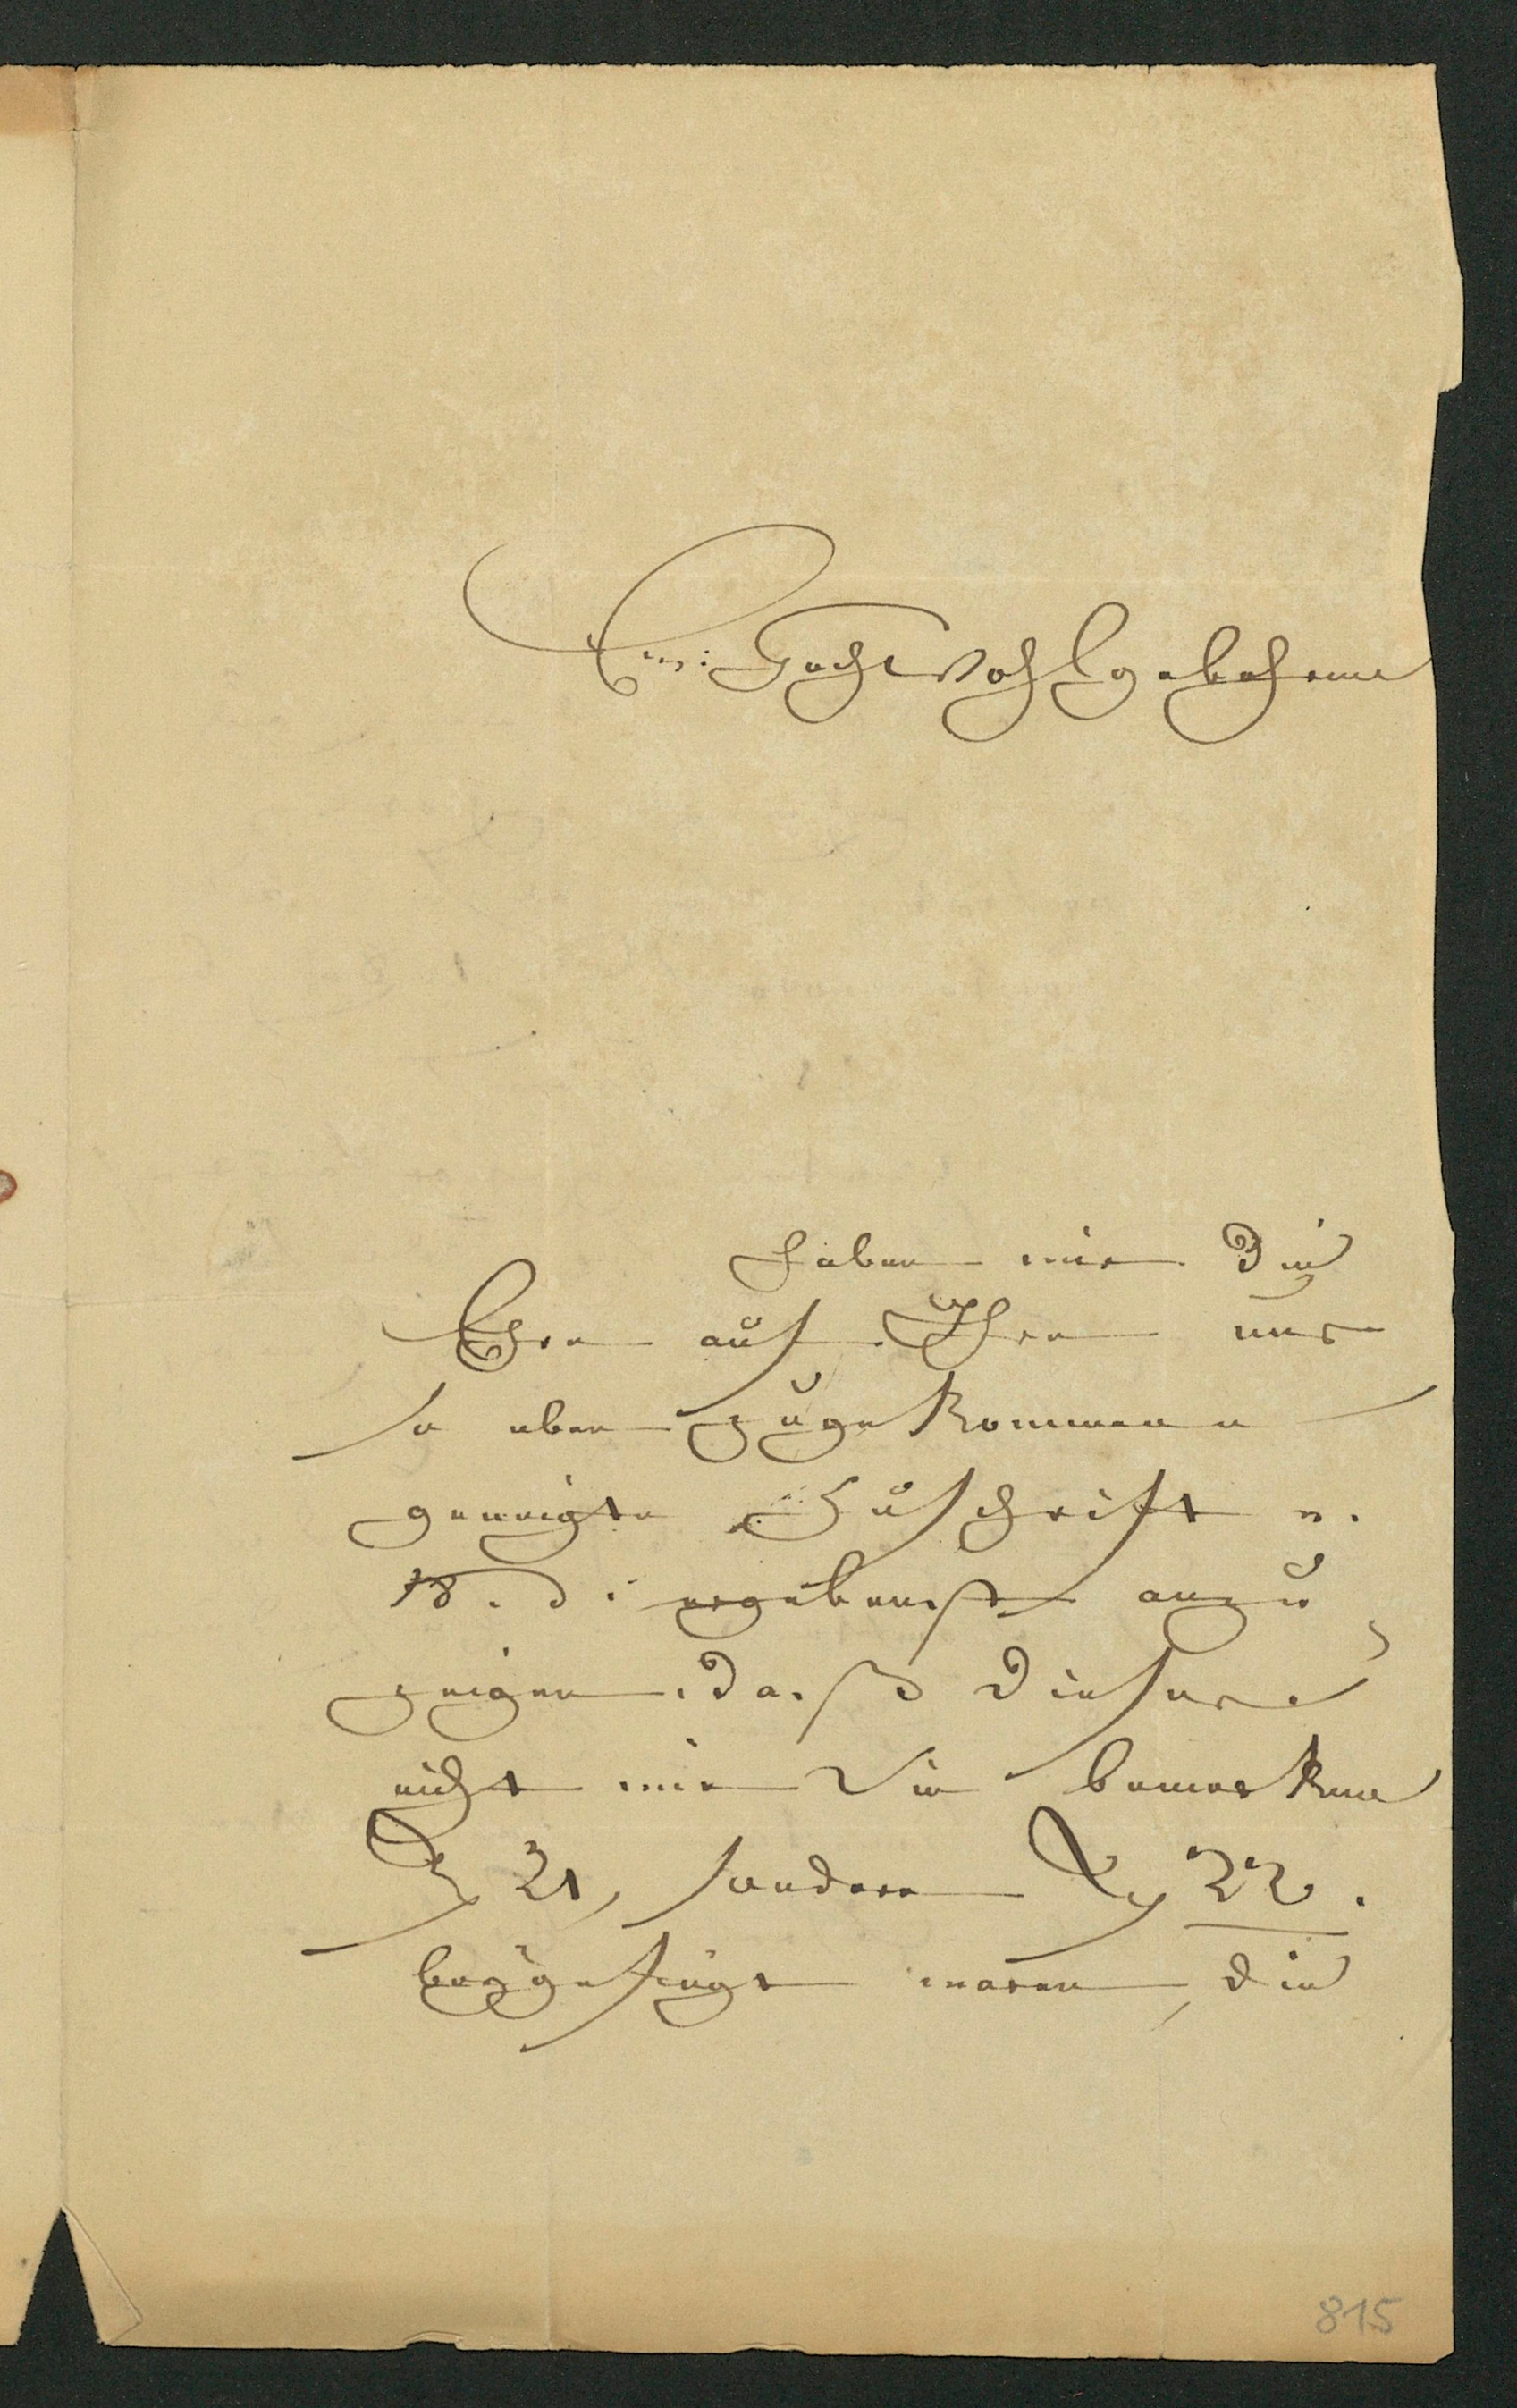 Ew: Hochwohlgebohren
haben wir die
Ehre auf Ihre uns
so eben zugekommene
geneigte Zuschrift v.
18. d. ergebenst anzu
zeigen, daß dieser
nicht wie Sie bemerken
21, sondern 22.
beygefügt waren, die
815